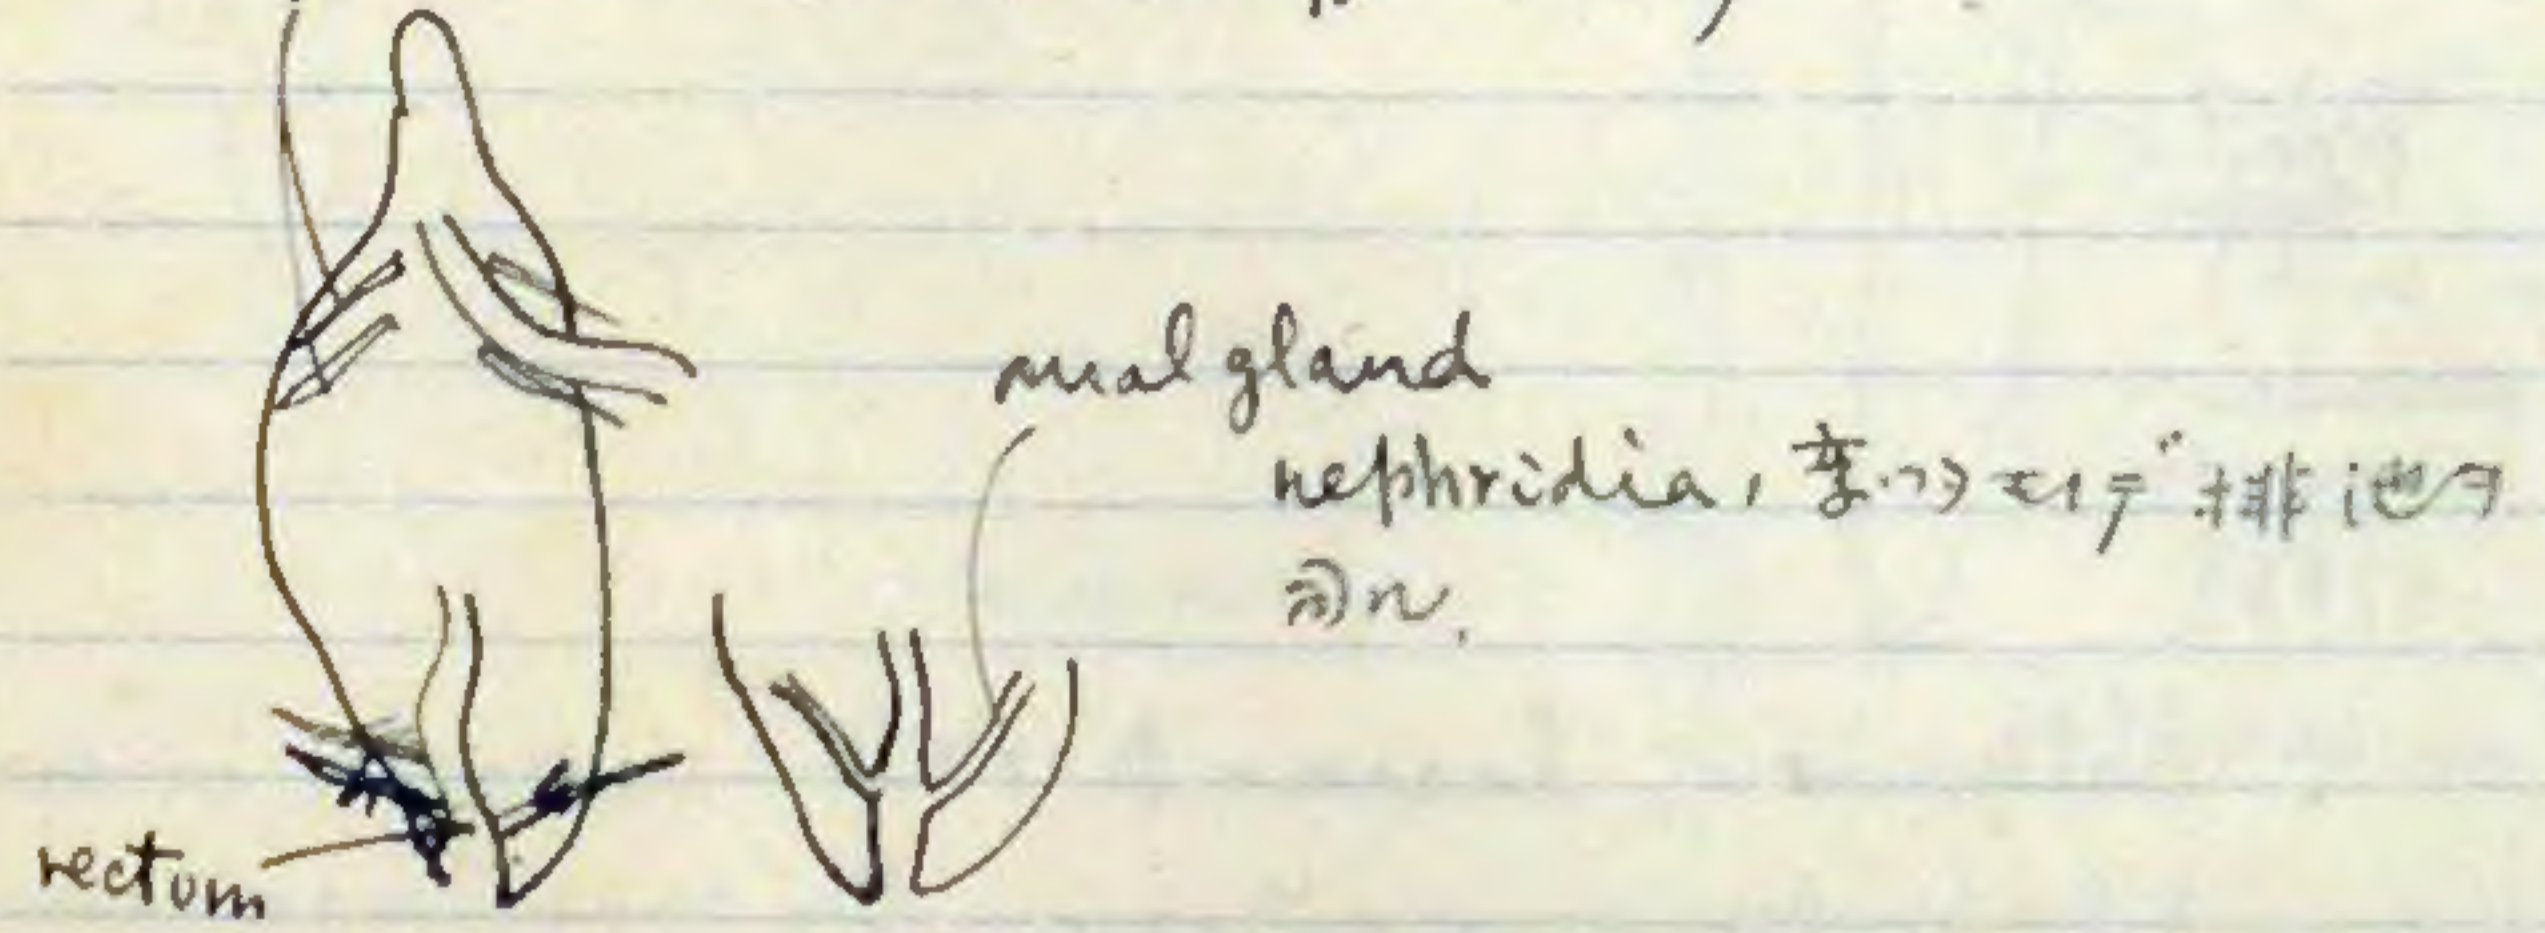 anal gland
nephridia, 変つタモノデ排泄ヲ
司ル.
rectum